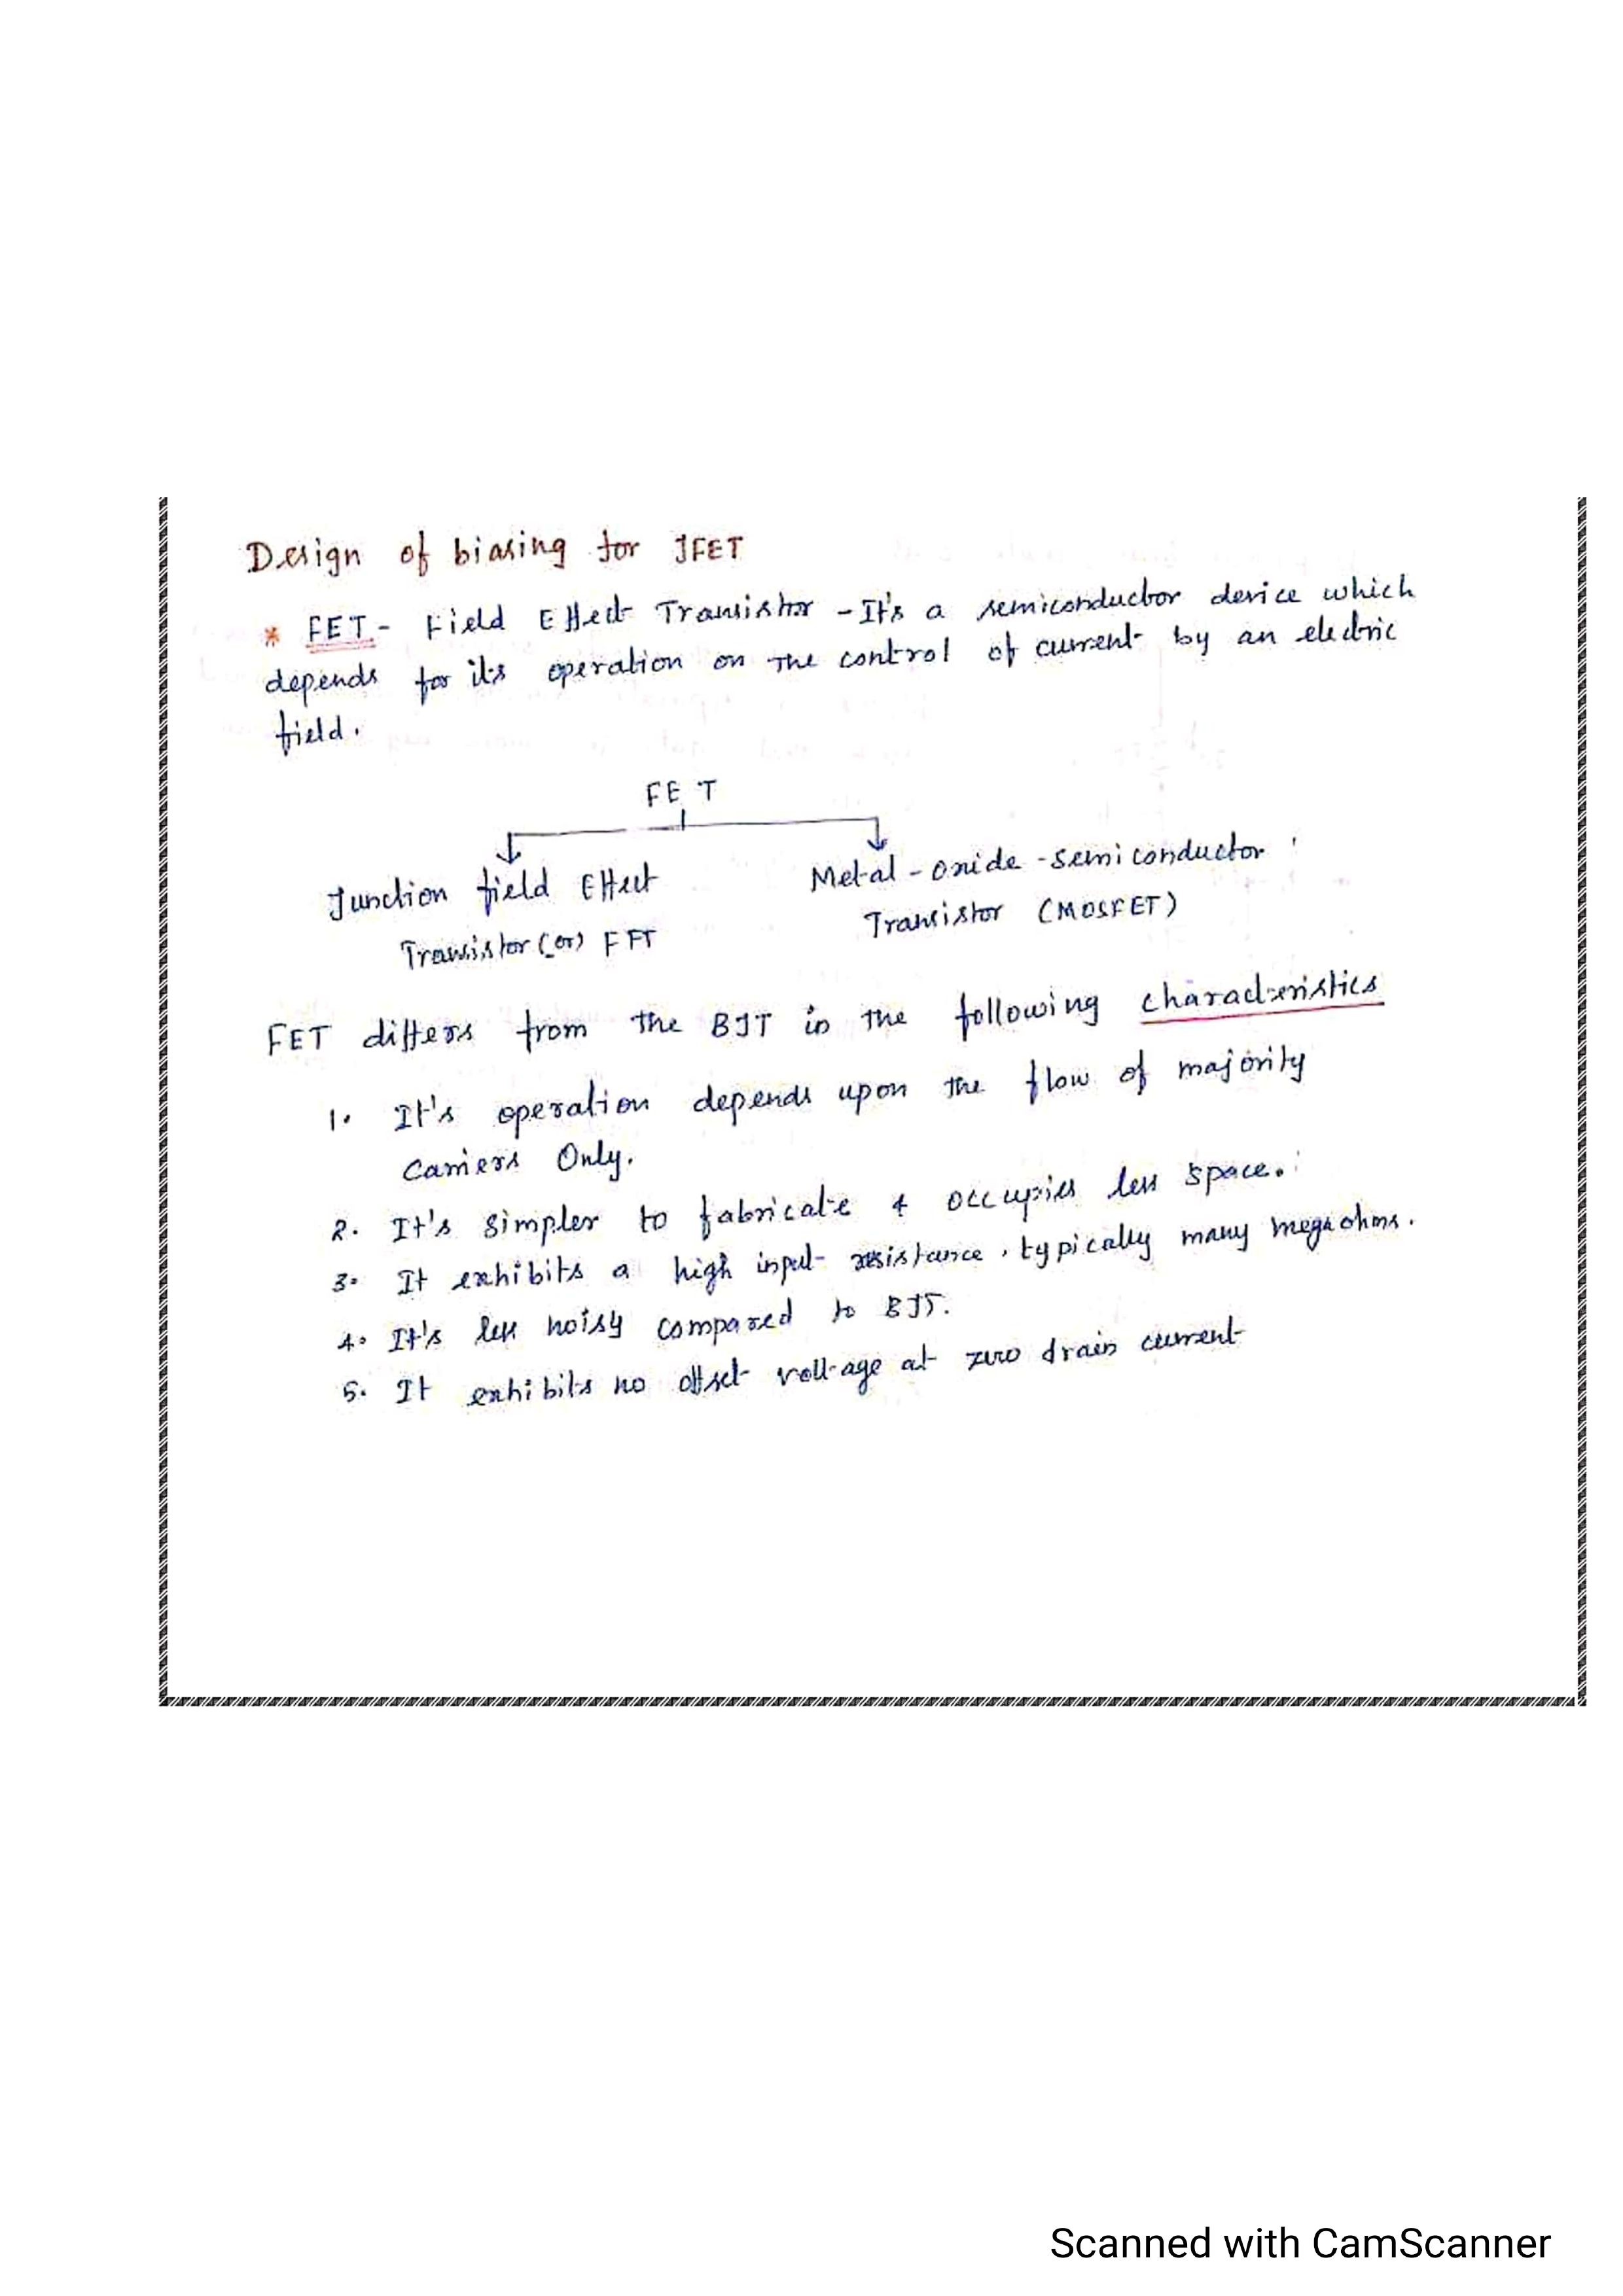 Design of biasing for JFET
* FET - Field Effect Transistor - It's a semiconductor device which
depends for it's operation on the control of current by an electric
field.
FET
Junction field Effect
Transistor (or) FET
Metal-oxide-semiconductor
Transistor (MOSFET)
FET differs from the BJT in the following characteristics
1. It's operation depends upon the flow of majority
Carriers Only.
2. It's simpler to fabricate & occupies less space.
3. It exhibits a high input resistance, typically many megaohms.
4. It's less noisy compared to BJT.
5. It exhibits no offset voltage at zero drain current
Scanned with CamScanner